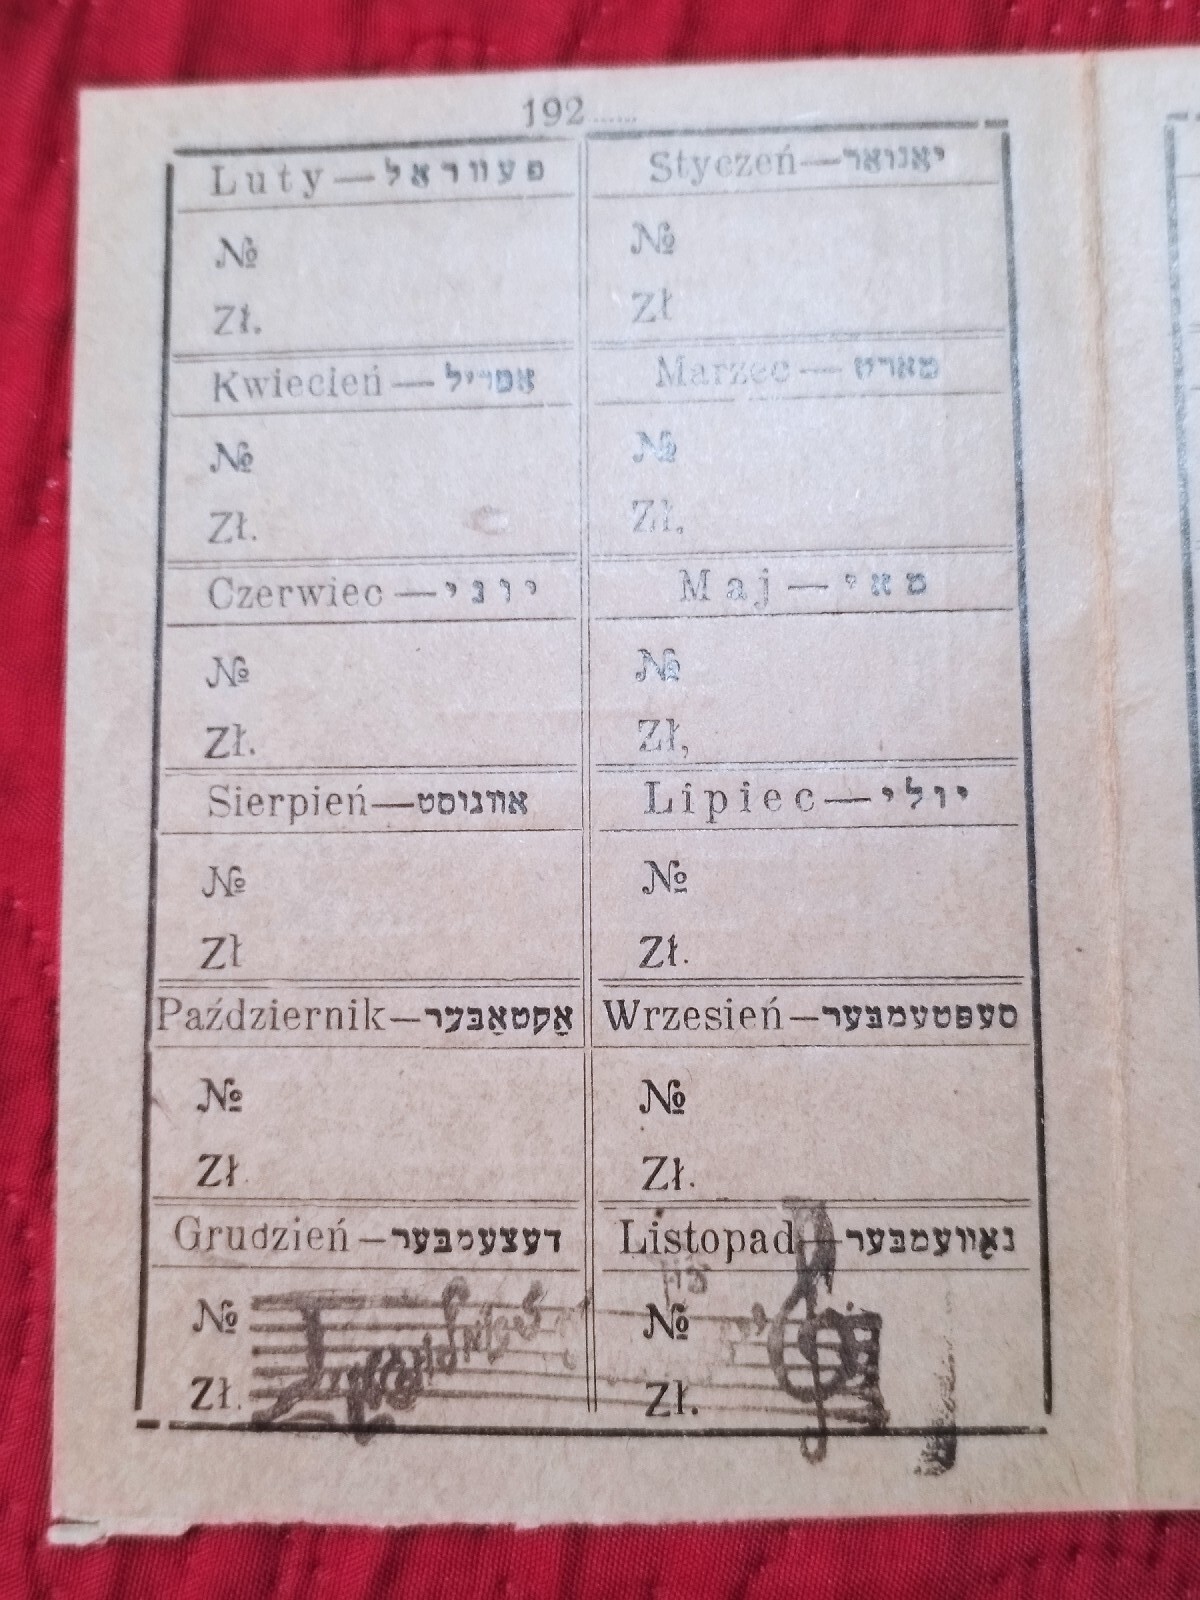 192......
Luty — פעווראל
Styczeń — יאנואר
№
№
Zł.
Zł
Kwiecień — אפריל
Marzec — מארט
№
№
Zł.
Zł.
Czerwiec — יוני
Maj — מאי
№
№
Zł.
Zł,
Sierpień — אווגוסט
Lipiec — יולי
№
№
Zł
Zł.
Październik — אָקטאָבער
Wrzesień — סעפטעמבער
№
№
Zł.
Zł.
Grudzień — דעצעמבער
Listopad — נאָוועמבער
№
№
Zł.
Zł.